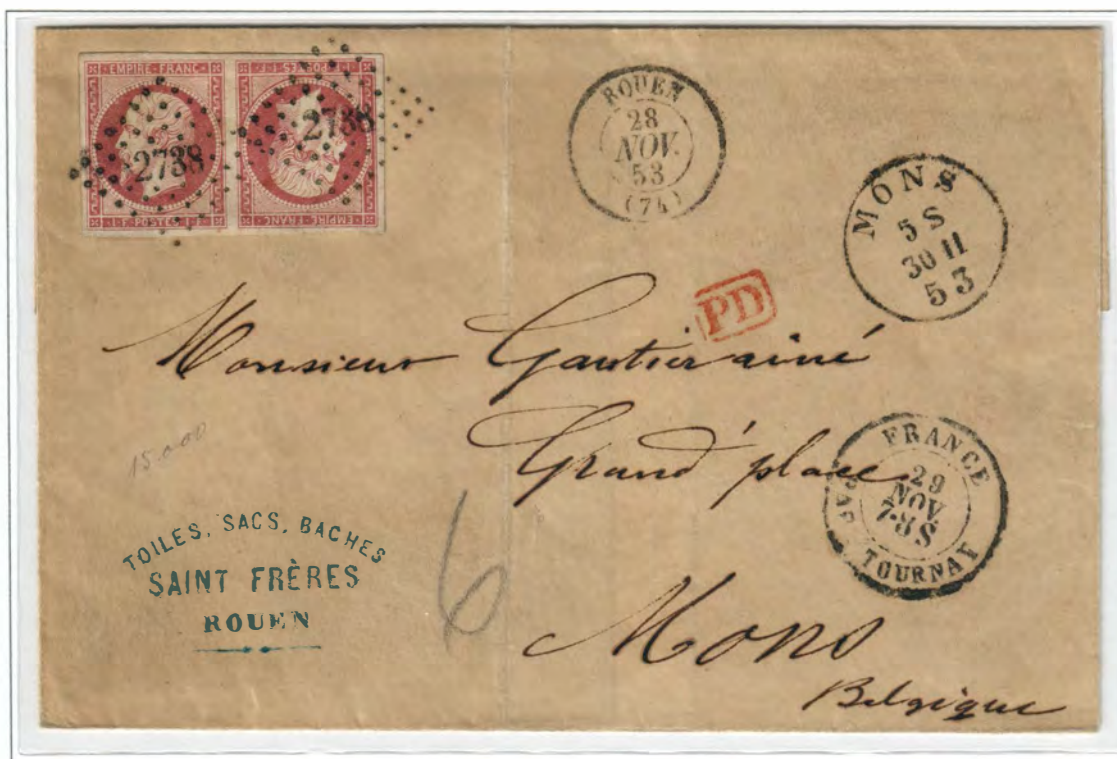 EMPIRE·FRANC·
POSTES
2738
POSTES
EMPIRE FRANC
2738
ROUEN
28
NOV.
53
(74)
MONS
5 S
30 11
53
PD
Monsieur Gautier ainé
Grand' place
Mons
Belgique
FRANCE
29
NOV
7-8 S
TOURNAY
15.000
6
TOILES, SACS, BACHES
SAINT FRÈRES
ROUEN